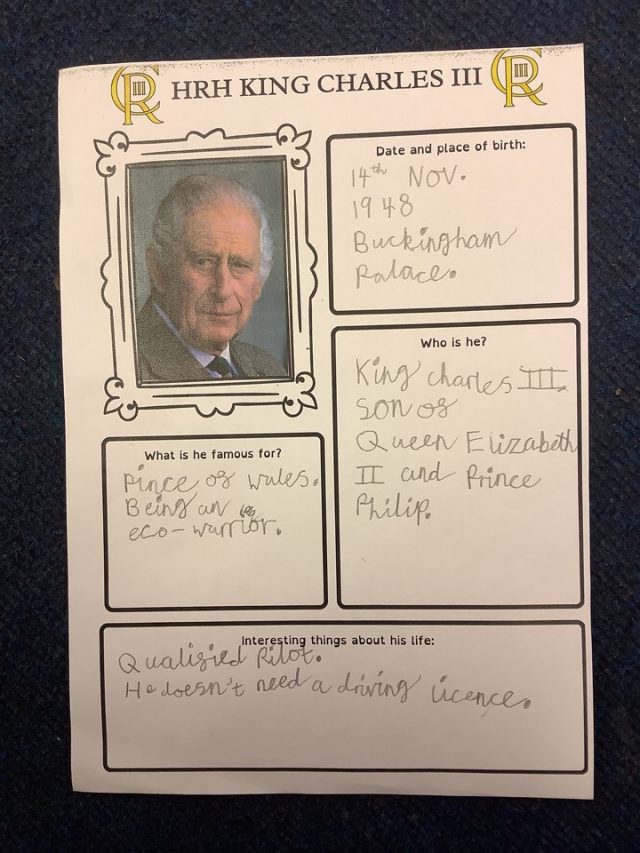 HRH KING CHARLES III
Date and place of birth:
14th Nov.
1948
Buckingham
Palace.
Who is he?
King charles III.
son of
Queen Elizabeth
II and Prince
Philip.
What is he famous for?
Pince of wales.
Being an
eco-warrior.
Interesting things about his life:
Qualified Pilot.
He doesn't need a driving licence.